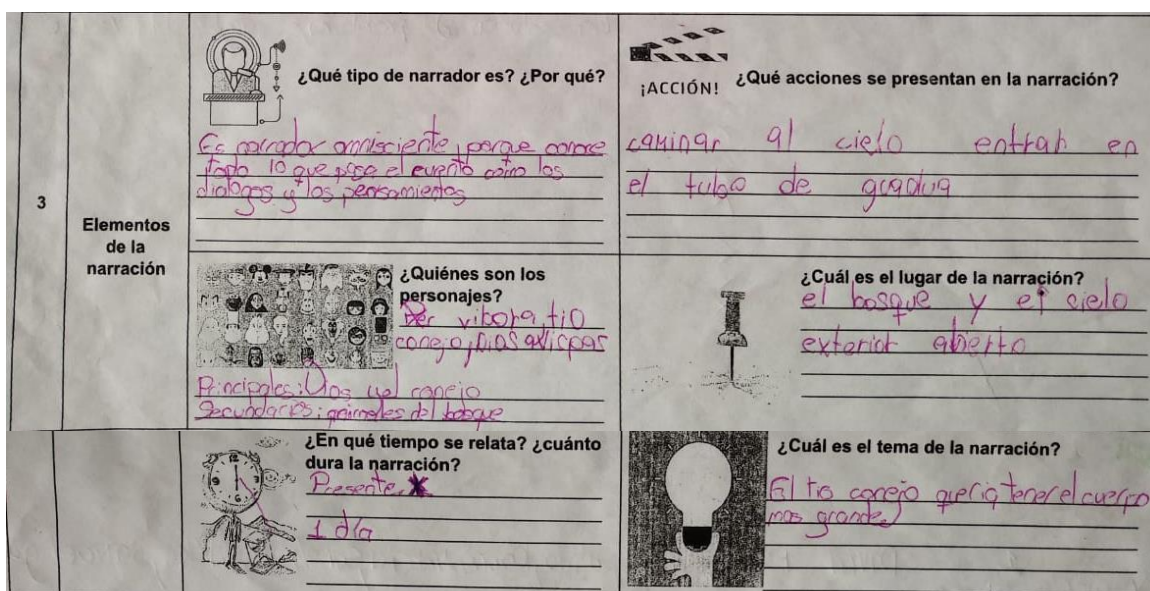 3
Elementos
de la
narración
¿Qué tipo de narrador es? ¿Por qué?
Es narrador omnisciente, porque conoce
todo lo que pasa el evento como los
dialogos y los pensamientos
¡ACCIÓN!
¿Qué acciones se presentan en la narración?
caminar al cielo entrar en
el tubo de guadua
¿Quiénes son los
personajes?
vibora, tio
conejo, Dios avispas
Principales: Dios y el conejo
Secundarios: animales del bosque
¿Cuál es el lugar de la narración?
el bosque y el cielo
exterior abierto
¿En qué tiempo se relata? ¿cuánto
dura la narración?
Presente. X
1 día
¿Cuál es el tema de la narración?
El tio conejo queria tener el cuerpo
mas grande